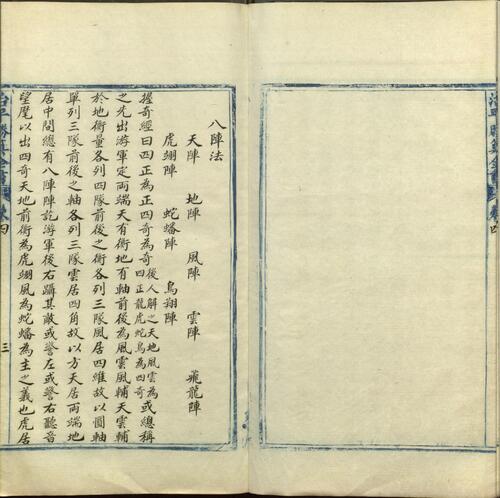 八陣法
天陣 地陣 風陣 雲陣 飛龍陣
虎翊陣 蛇蟠陣 鳥翔陣
握奇經曰四正為正四奇為奇後人解之天地風雲為四正龍虎蛇鳥為四奇或總稱
之先出游軍定兩端天有衝地有軸前後為風雲風輔天雲輔
於地衝量各列四隊前後之衝各列三隊風居四維故以圓軸
單列三隊前後之軸各列三隊雲居四角故以方天居兩端地
居中間總有八陣陣訖游軍後右躡其敵或警左或警右聽音
望麾以出四奇天地前衝為虎翊風為蛇蟠為主之義也虎居
治平勝算全書 卷四 三